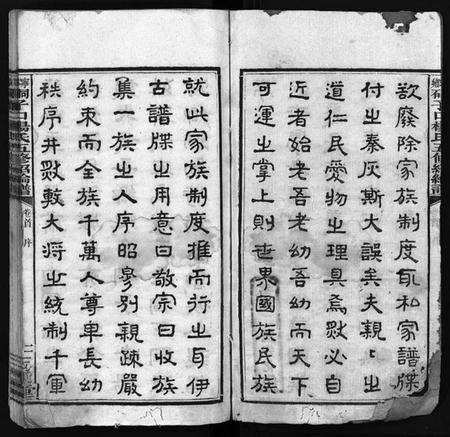 欲廢除家族制度取私家譜牒
付之秦灰斯大誤矣夫親〻之
道仁民愛物之理具焉然必自
近者始老吾老幼吾幼而天下
可運之掌上則世界國族民族
就此家族制度推而行之耳伊
古譜牒之用意曰敬宗曰收族
集一族之人序昭穆別親疎嚴
約束而全族千萬人尊卑長幼
秩序井然數大將之統制千軍
桐子口楊氏五修
卷首 序